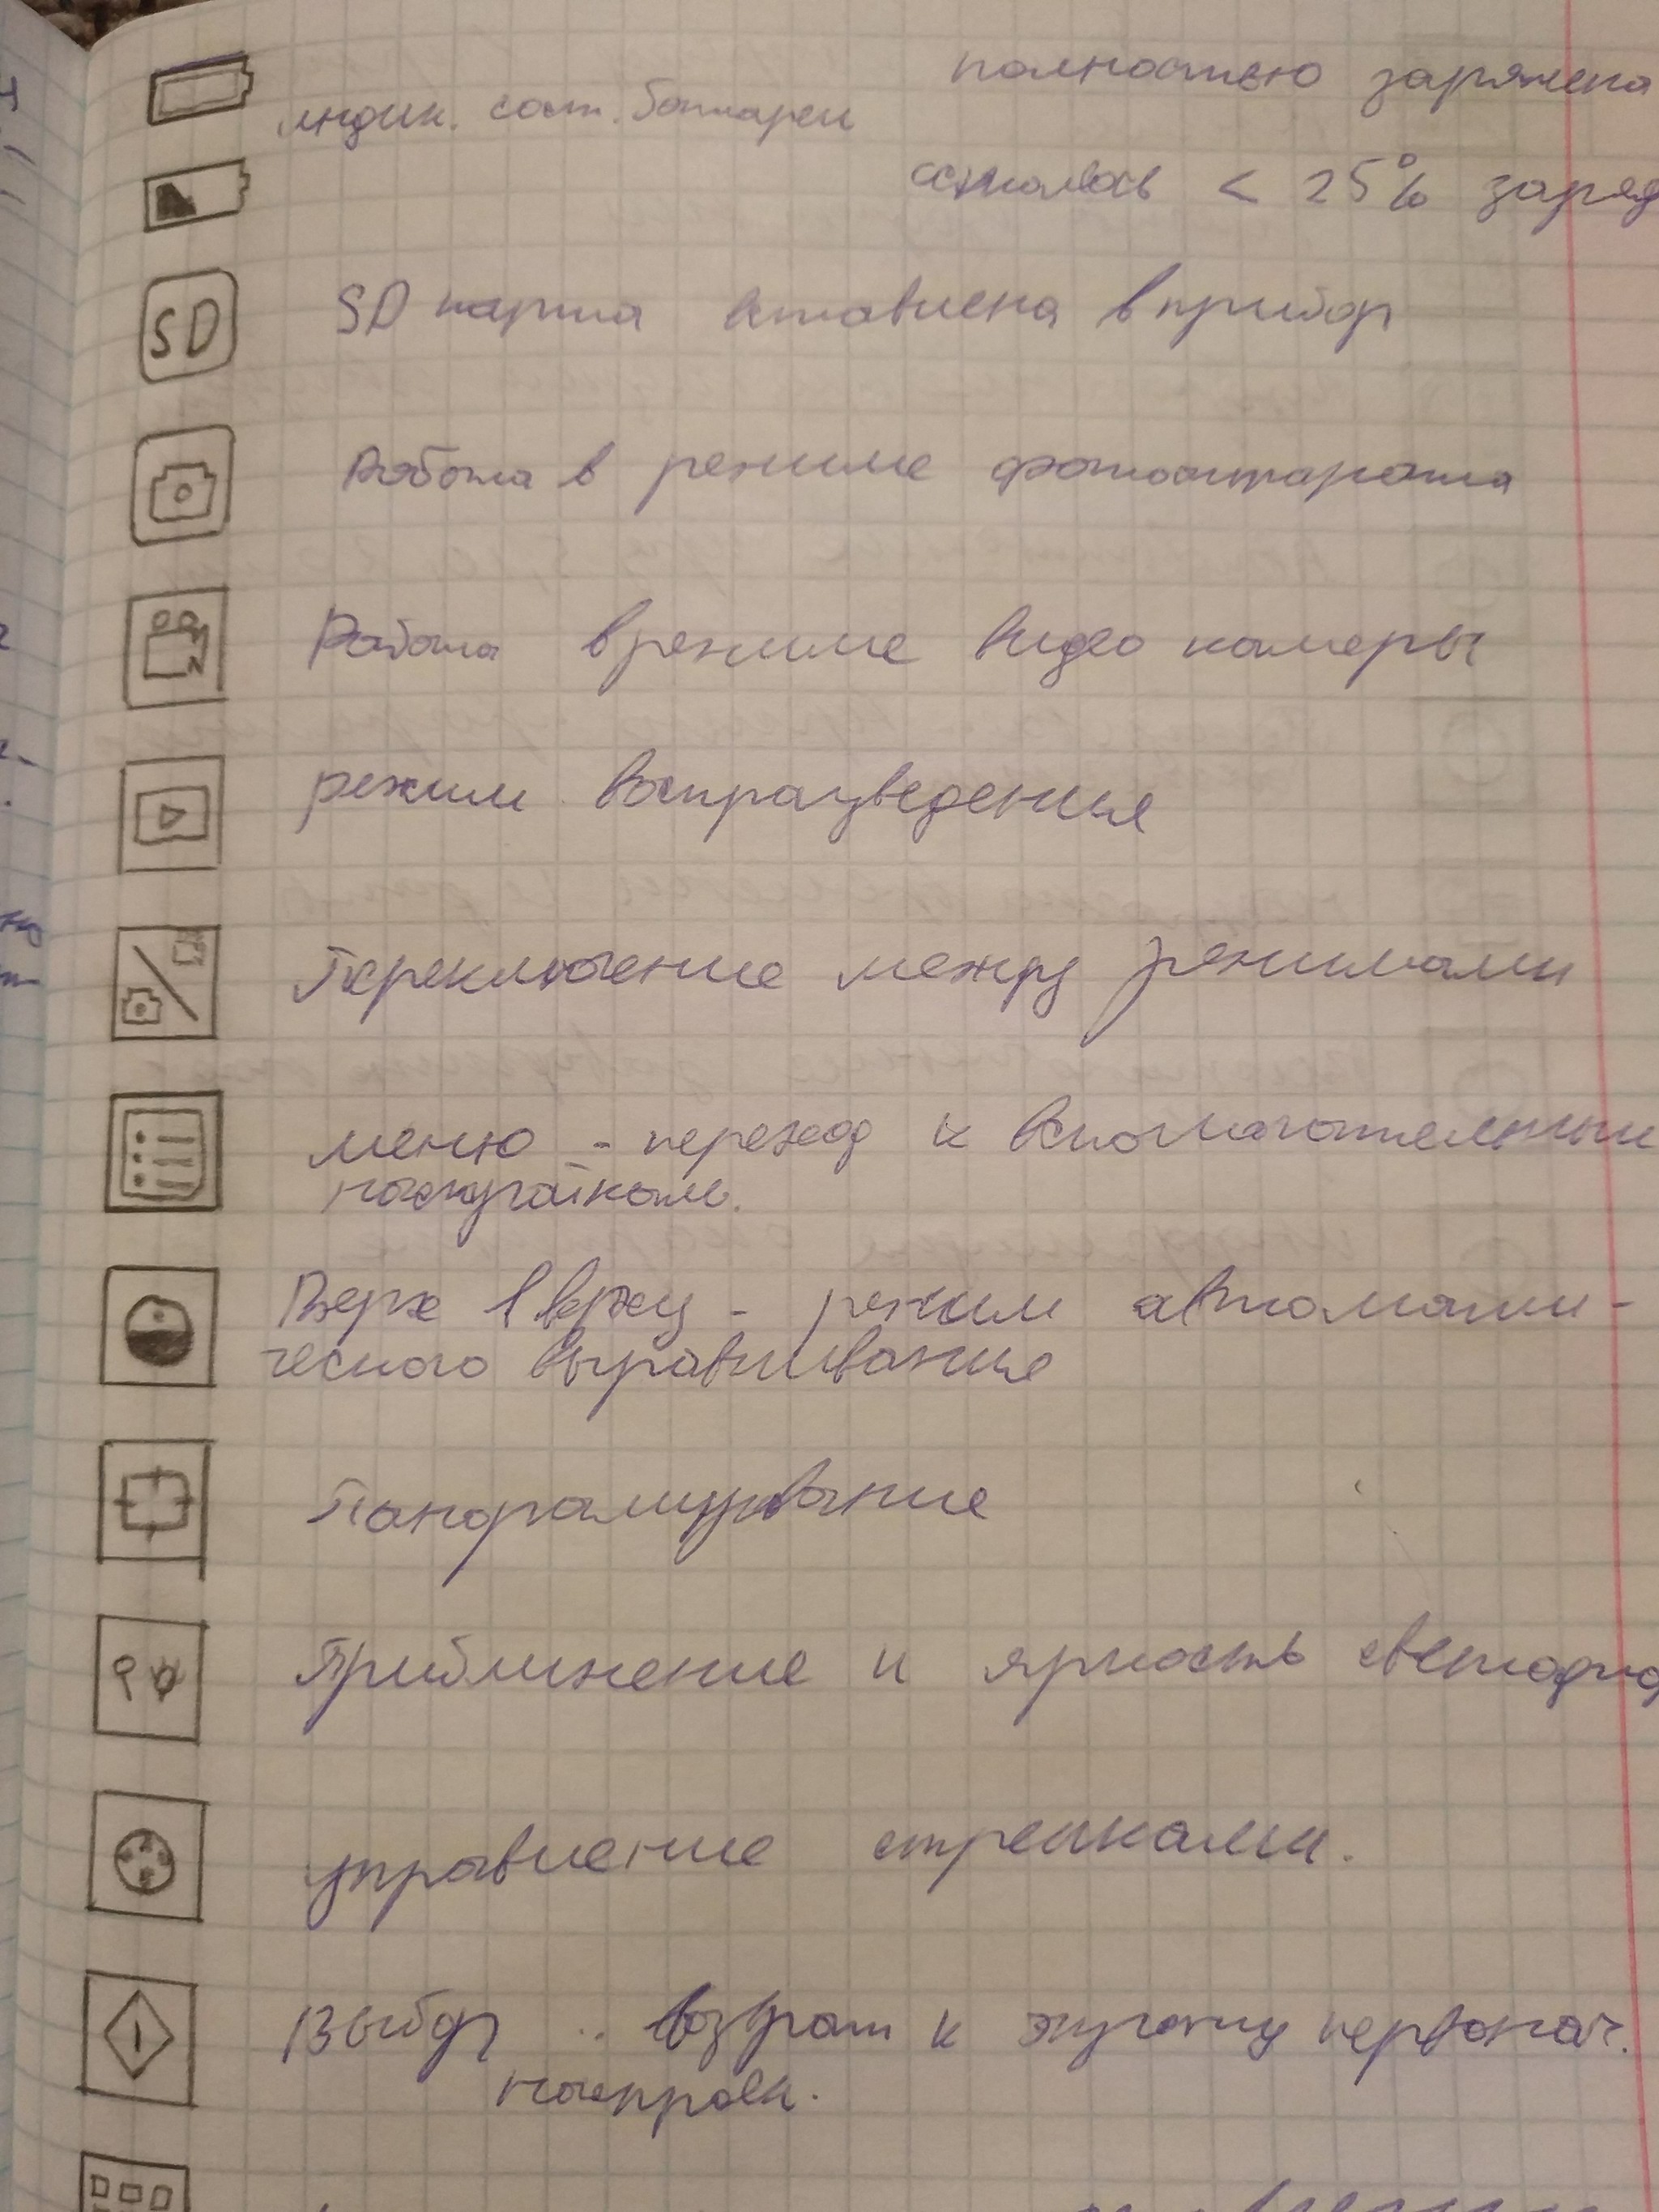 полностью заряжена
индик. сост. батареи
осталась < 25% заряд
SD
SD карта вставлена в прибор
Работа в режиме фотоаппарата
Работа в режиме видео камеры
режим воспроизведения
Переключение между режимами
меню - переход к вспомогательным
настройкам.
Верх вверху - режим автомати-
ческого выравнивания
Панорамирование
Приближение и яркость светодио
управление стрелками.
Выбор .. возврат к экрану первонач.
направл.